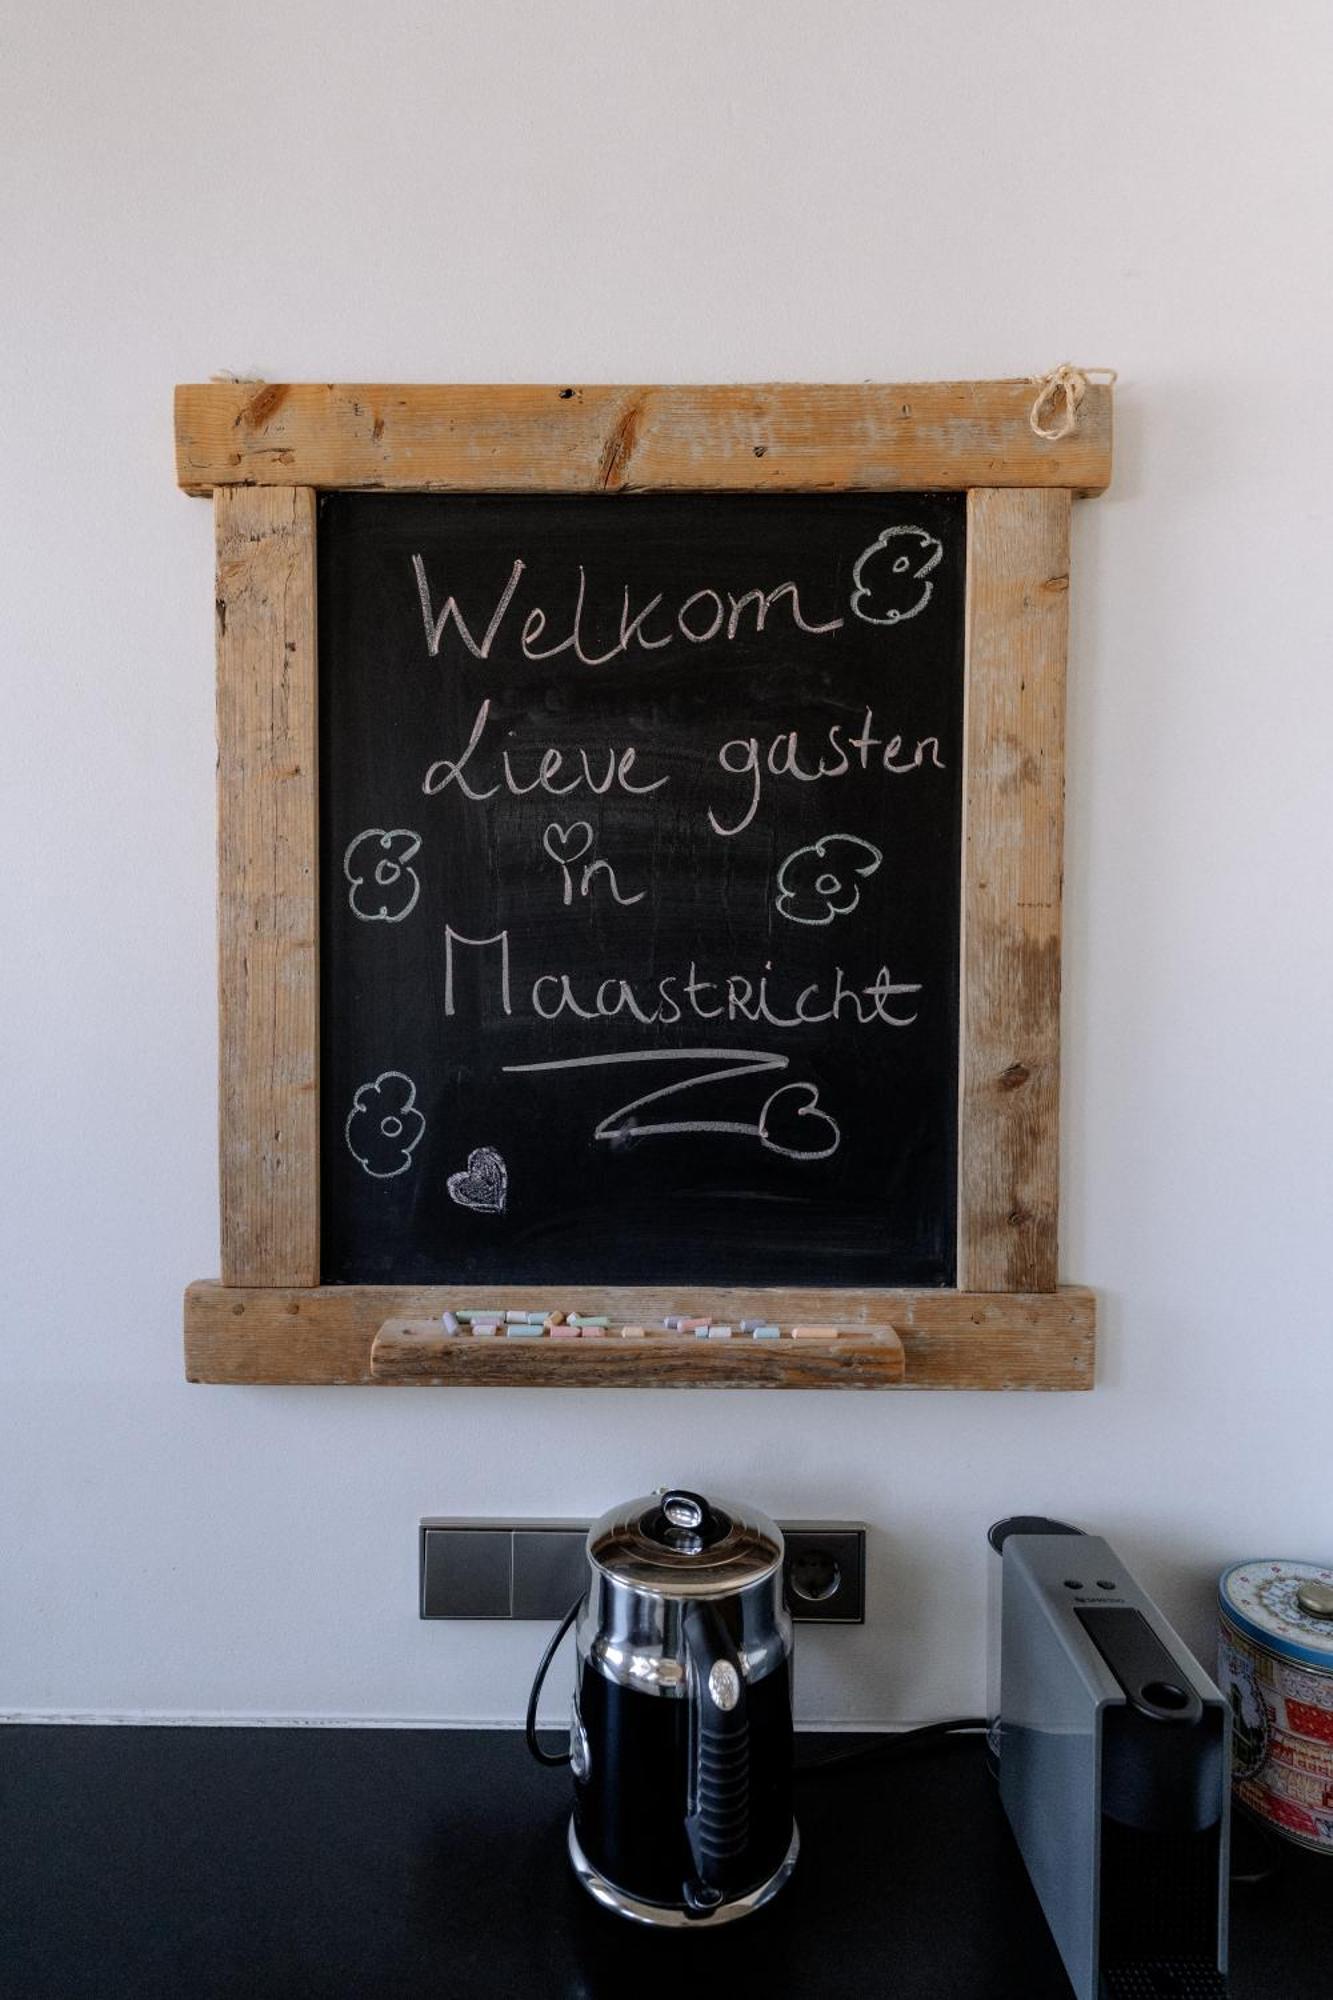 Welkom
Lieve gasten
in
Maastricht
NESPRESSO